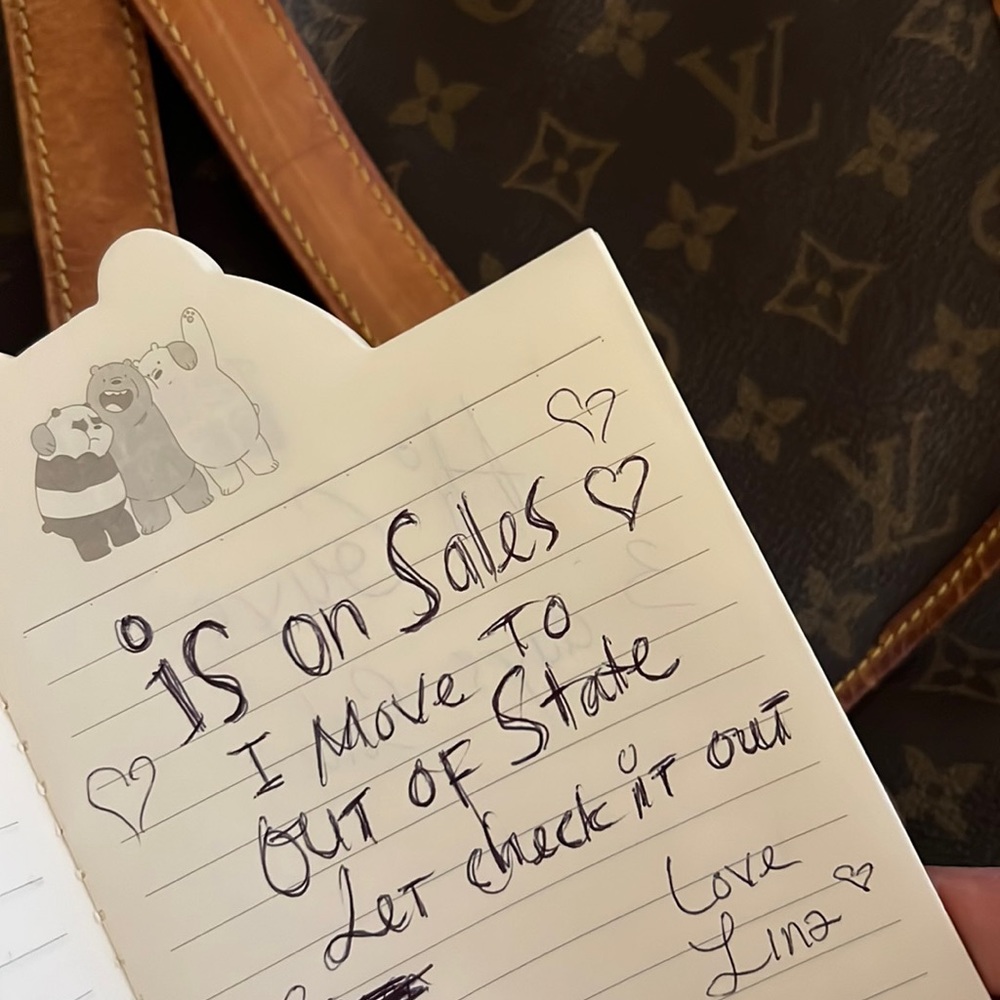 is on Sales
I Move TO
OUT OF State
LET check iT out
Love
Lina
LV